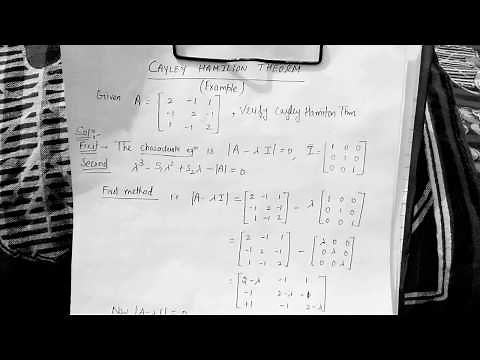 CAYLEY HAMILTON THEORM
(Example)
Given A = [2 -1 1; -1 2 -1; 1 -1 2] , Verify Cayley Hamilton Thm
Sol:-
First → The characteristic eqn is |A - λI| = 0, I = [1 0 0; 0 1 0; 0 0 1]
Second λ³ - S₁λ² + S₂λ - |A| = 0
First method is |A - λI| = [2 -1 1; -1 2 -1; 1 -1 2] - λ [1 0 0; 0 1 0; 0 0 1]
= [2 -1 1; -1 2 -1; 1 -1 2] - [λ 0 0; 0 λ 0; 0 0 λ]
= [2-λ -1 1; -1 2-λ -1; +1 -1 2-λ]
Now |A-λI| = 0